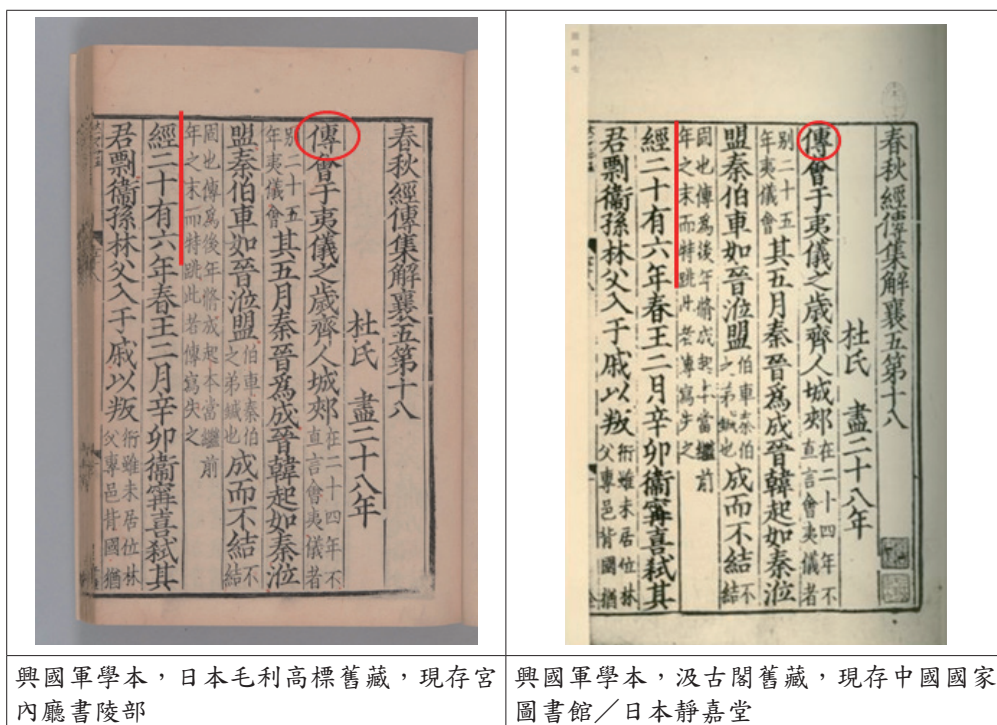 春秋經傳集解襄五第十八
杜氏　盡二十八年
傳會于夷儀之歲齊人城郟在二十四年不直言會夷儀者
別二十五年夷儀會其五月秦晉爲成晉韓起如秦涖
盟秦伯車如晉涖盟伯車秦伯之弟鍼也成而不結不結
固也傳爲後年脩成起本當繼前
年之末而特跳此者傳寫失之
經二十有六年春王二月辛卯衞甯喜弒其
君剽衞孫林父入于戚以叛衎雖未居位林父專邑背國猶
春秋經傳集解襄五第十八
杜氏　盡二十八年
傳會于夷儀之歲齊人城郟在二十四年不直言會夷儀者
別二十五年夷儀會其五月秦晉爲成晉韓起如秦涖
盟秦伯車如晉涖盟伯車秦伯之弟鍼也成而不結不結
固也傳爲後年脩成起本當繼前
年之末而特跳此者傳寫失之
經二十有六年春王二月辛卯衞甯喜弒其
君剽衞孫林父入于戚以叛衎雖未居位林父專邑背國猶
興國軍學本，日本毛利高標舊藏，現存宮
內廳書陵部
興國軍學本，汲古閣舊藏，現存中國國家
圖書館／日本靜嘉堂